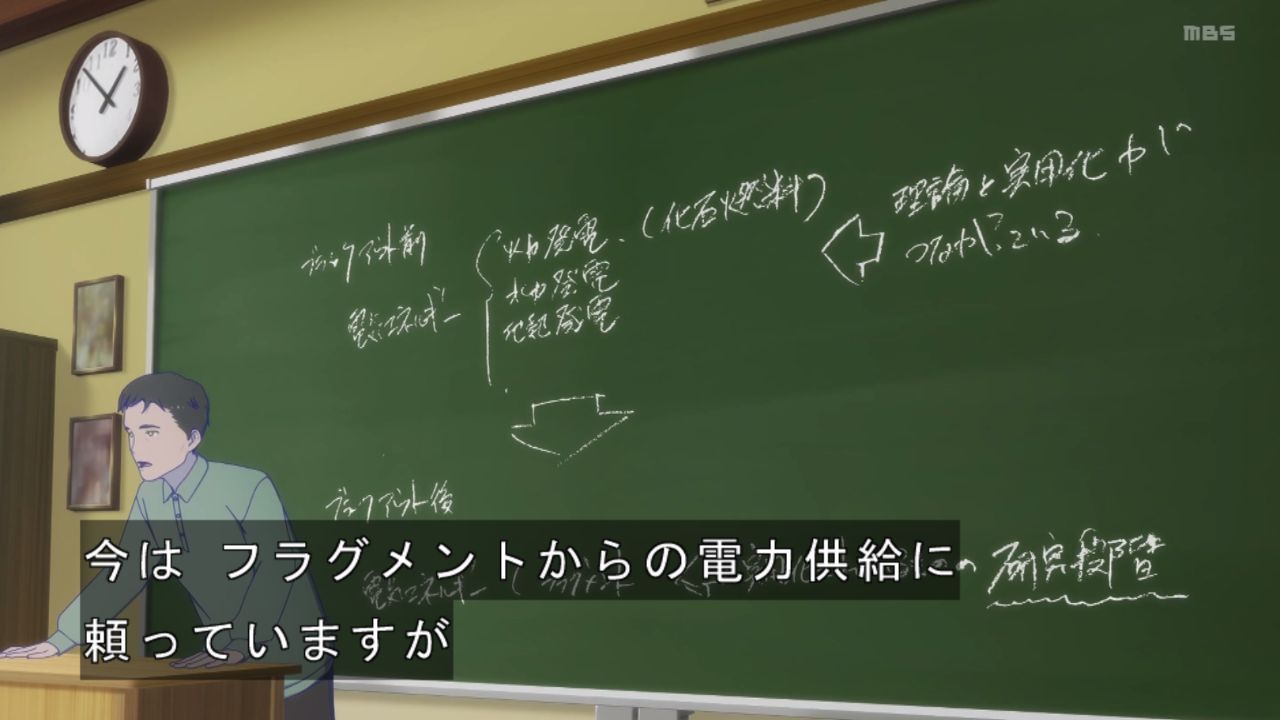 MBS
ブラックアウト前
電気エネルギー
火力発電、(化石燃料)
水力発電
発電
理論と実用化が
つながっている.
ブラックアウト後
電気エネルギー
研究段階
今は フラグメントからの電力供給に
頼っていますが